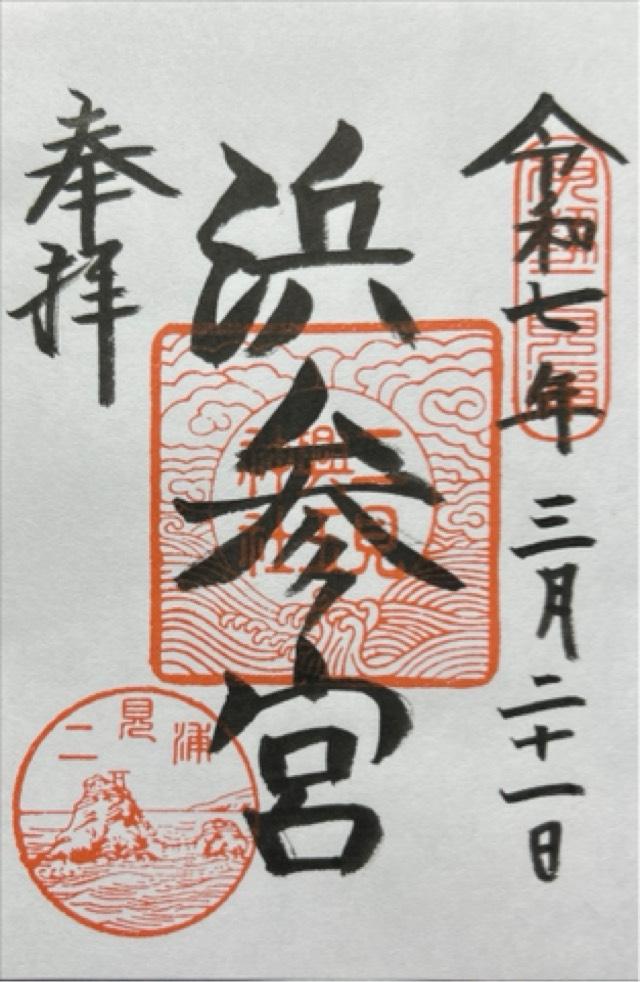 令和七年三月二十一日
伊勢二見浦
浜参宮
二見
興玉
神社
奉拝
二見浦